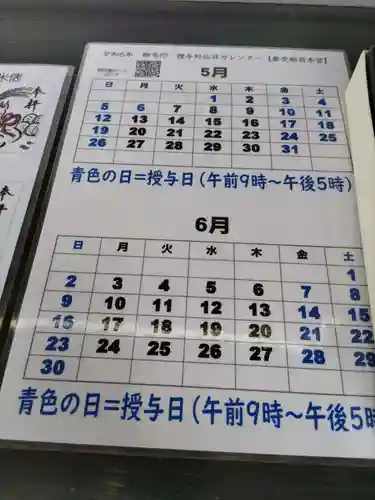 令和6年 御朱印 授与対応日カレンダー
5月
日 月 火 水 木 金 土
1 2 3 4
5 6 7 8 9 10 11
12 13 14 15 16 17 18
19 20 21 22 23 24 25
26 27 28 29 30 31
青色の日=授与日(午前9時～午後5時)
6月
日 月 火 水 木 金 土
1
2 3 4 5 6 7 8
9 10 11 12 13 14 15
16 17 18 19 20 21 22
23 24 25 26 27 28 29
30
青色の日=授与日(午前9時～午後5時